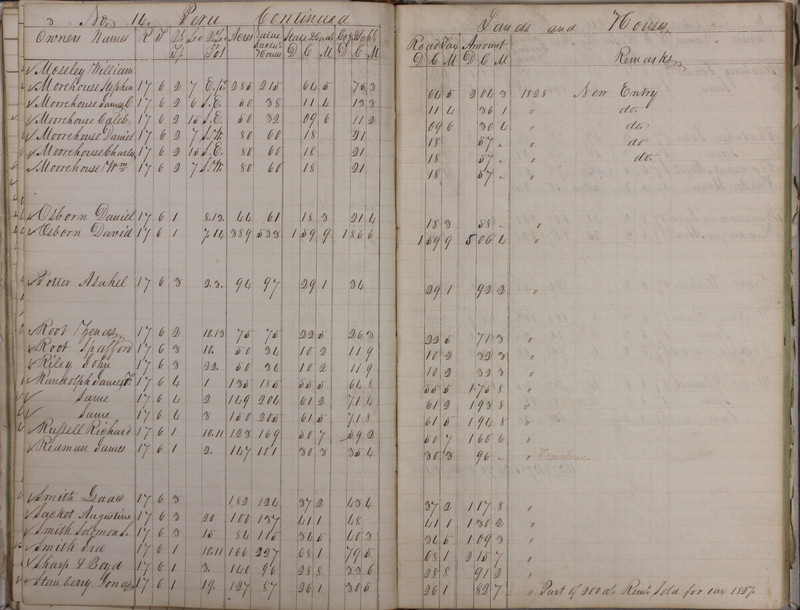 3 No. 14. Peru Continued Lands and Houses
Owners Names R T Qr Tp Lot Acres Value Land & Houses State & Canal D C M Co & School D C M Road Tax D C M Amount D C M Remarks
Moseley William
Morehouse Stephen 17 6 2 7 285 215 64 5 75 3 64 5 2 04 3 1828 New Entry
Moorehouse Samuel 17 6 2 6 S.E. 50 38 11 4 13 3 11 4 36 1 " do.
Moorehouse Caleb. 17 6 2 15 S.E. 50 32 09 6 11 2 09 6 30 4 " do.
Moorehouse Daniel 17 6 2 7 80 60 18 21 18 57 " do
Moorehouse Charles 17 6 2 15 S.E. 80 60 18 21 18 57 " do.
Moorehouse Wm 17 6 2 7 80 60 18 21 18 57 "
Osborn Daniel 17 6 1 8.13. 44 61 18 3 21 4 18 3 58 "
Osborn David 17 6 1 7.14 389 533 1 59 9 1 86 6 1 59 9 5 06 4 "
Asahel 17 6 3 23. 94 97 29 1 34 29 1 92 2 "
Root Zenas 17 6 2 10.13 75 75 22 5 26 3 22 5 71 3 "
Root Spafford 17 6 3 10. 50 34 10 2 11 9 10 2 32 3 "
Riley John 17 6 3 22. 50 34 10 2 11 9 10 2 32 3 "
Randolph James 17 6 4 1 135 185 55 5 64 8 55 5 1 75 8 "
Same 17 6 4 2 149 204 61 2 71 4 61 2 1 93 8 "
Same 17 6 4 3 150 205 61 5 71 8 61 5 1 94 8 "
Russell Richard 17 6 1 10.11 123 169 50 7 59 2 50 7 1 60 6 "
Redman James 17 6 1 2. 147 101 30 3 35 4 30 3 96 "
Smith Isaac 17 6 3 182 124 37 2 43 4 37 2 1 17 8 "
Sacket Augustine 17 6 3 20 100 137 41 1 48 41 1 1 30 2 "
Smith Solomon S. 17 6 3 15 84 115 34 5 40 3 34 5 1 09 3 "
Smith Ira 17 6 1 10.11 166 227 68 1 79 5 68 1 2 15 7 "
Sharp & Boyd 17 6 1 3. 140 96 28 8 33 6 28 8 91 2 "
Stanbery Jonas 17 6 1 19. 127 87 26 1 30 5 26 1 82 7 " Part of 200 as. Remr. Sold for tax 1827